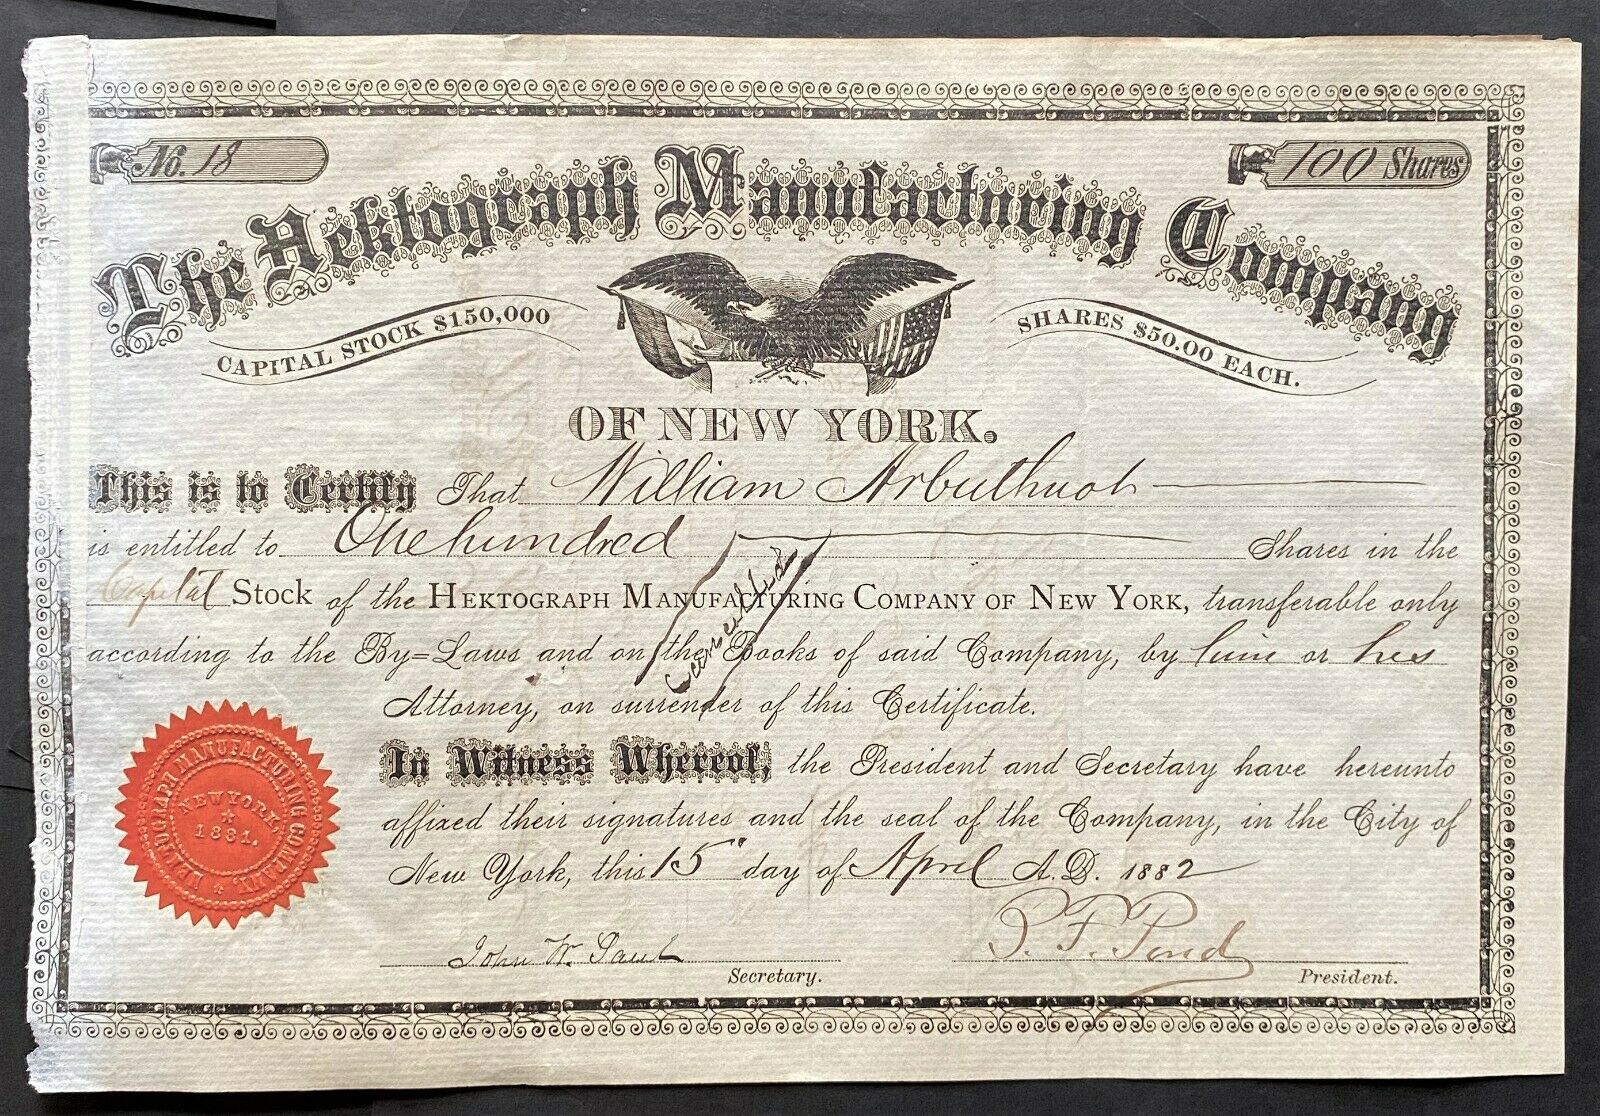 No. 18
100 Shares
The Hektograph Manufacturing Company
CAPITAL STOCK $150,000
SHARES $50.00 EACH.
OF NEW YORK.
This is to Certify That William Arbuthnot
is entitled to One hundred Shares in the
Capital Stock of the HEKTOGRAPH MANUFACTURING COMPANY OF NEW YORK, transferable only
according to the By=Laws and on the Books of said Company, by him or his
Attorney, on surrender of this Certificate.
Cancelled
In Witness Whereof, the President and Secretary have hereunto
affixed their signatures and the seal of the Company, in the City of
New York, this 15" day of April A.D. 1882
HEKTOGRAPH MANUFACTURING COMPANY,
NEW YORK,
1881.
John W. Paul
Secretary.
P. F. Pond
President.